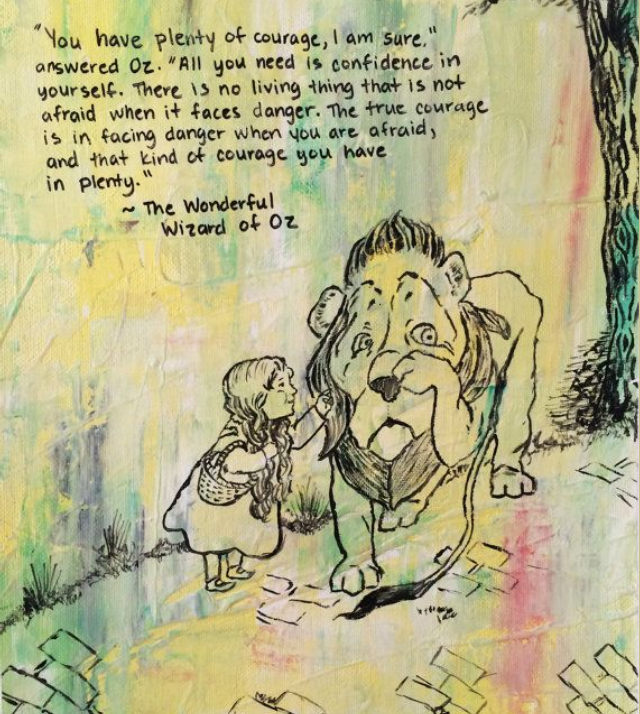 "You have plenty of courage, I am sure,"
answered Oz. "All you need is confidence in
yourself. There is no living thing that is not
afraid when it faces danger. The true courage
is in facing danger when you are afraid,
and that kind of courage you have
in plenty."
~ The Wonderful
Wizard of Oz